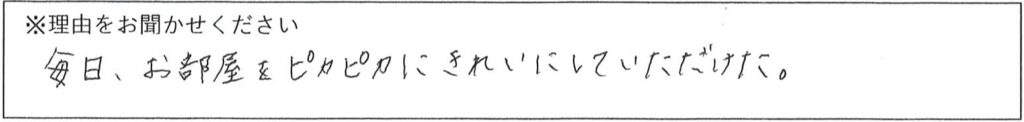 ※理由をお聞かせください
毎日、お部屋をピカピカにきれいにしていただけた。